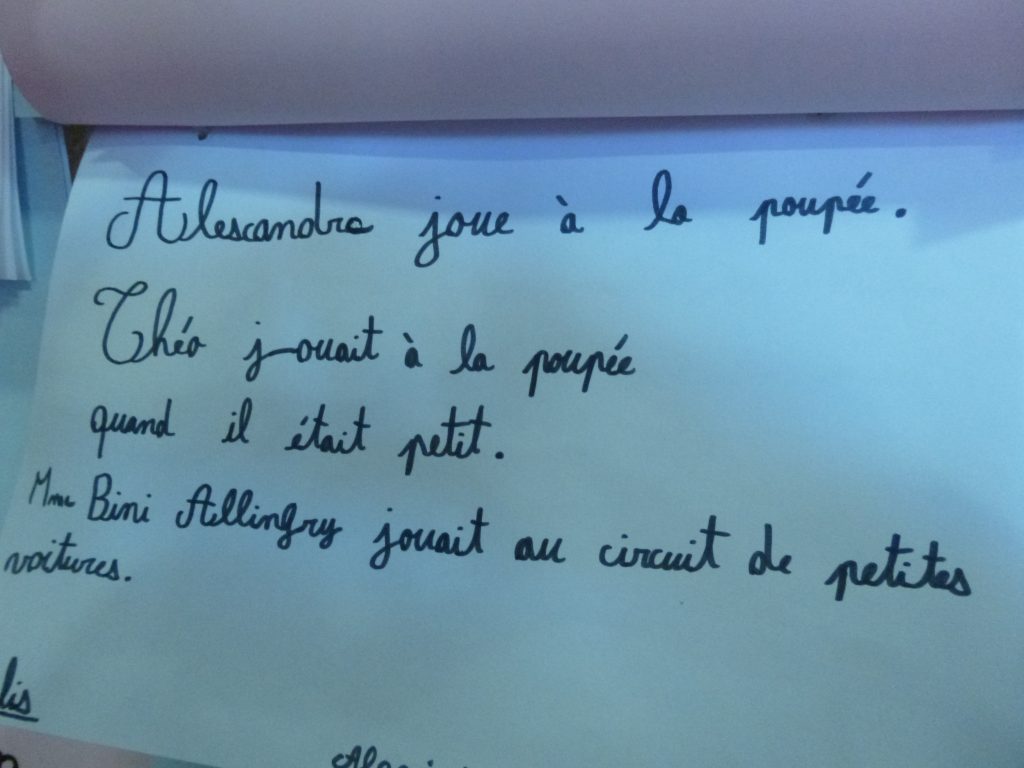 Alexandra joue à la poupée.
Théo jouait à la poupée
quand il était petit.
Mme Bini Allingry jouait au circuit de petites
voitures.
lis